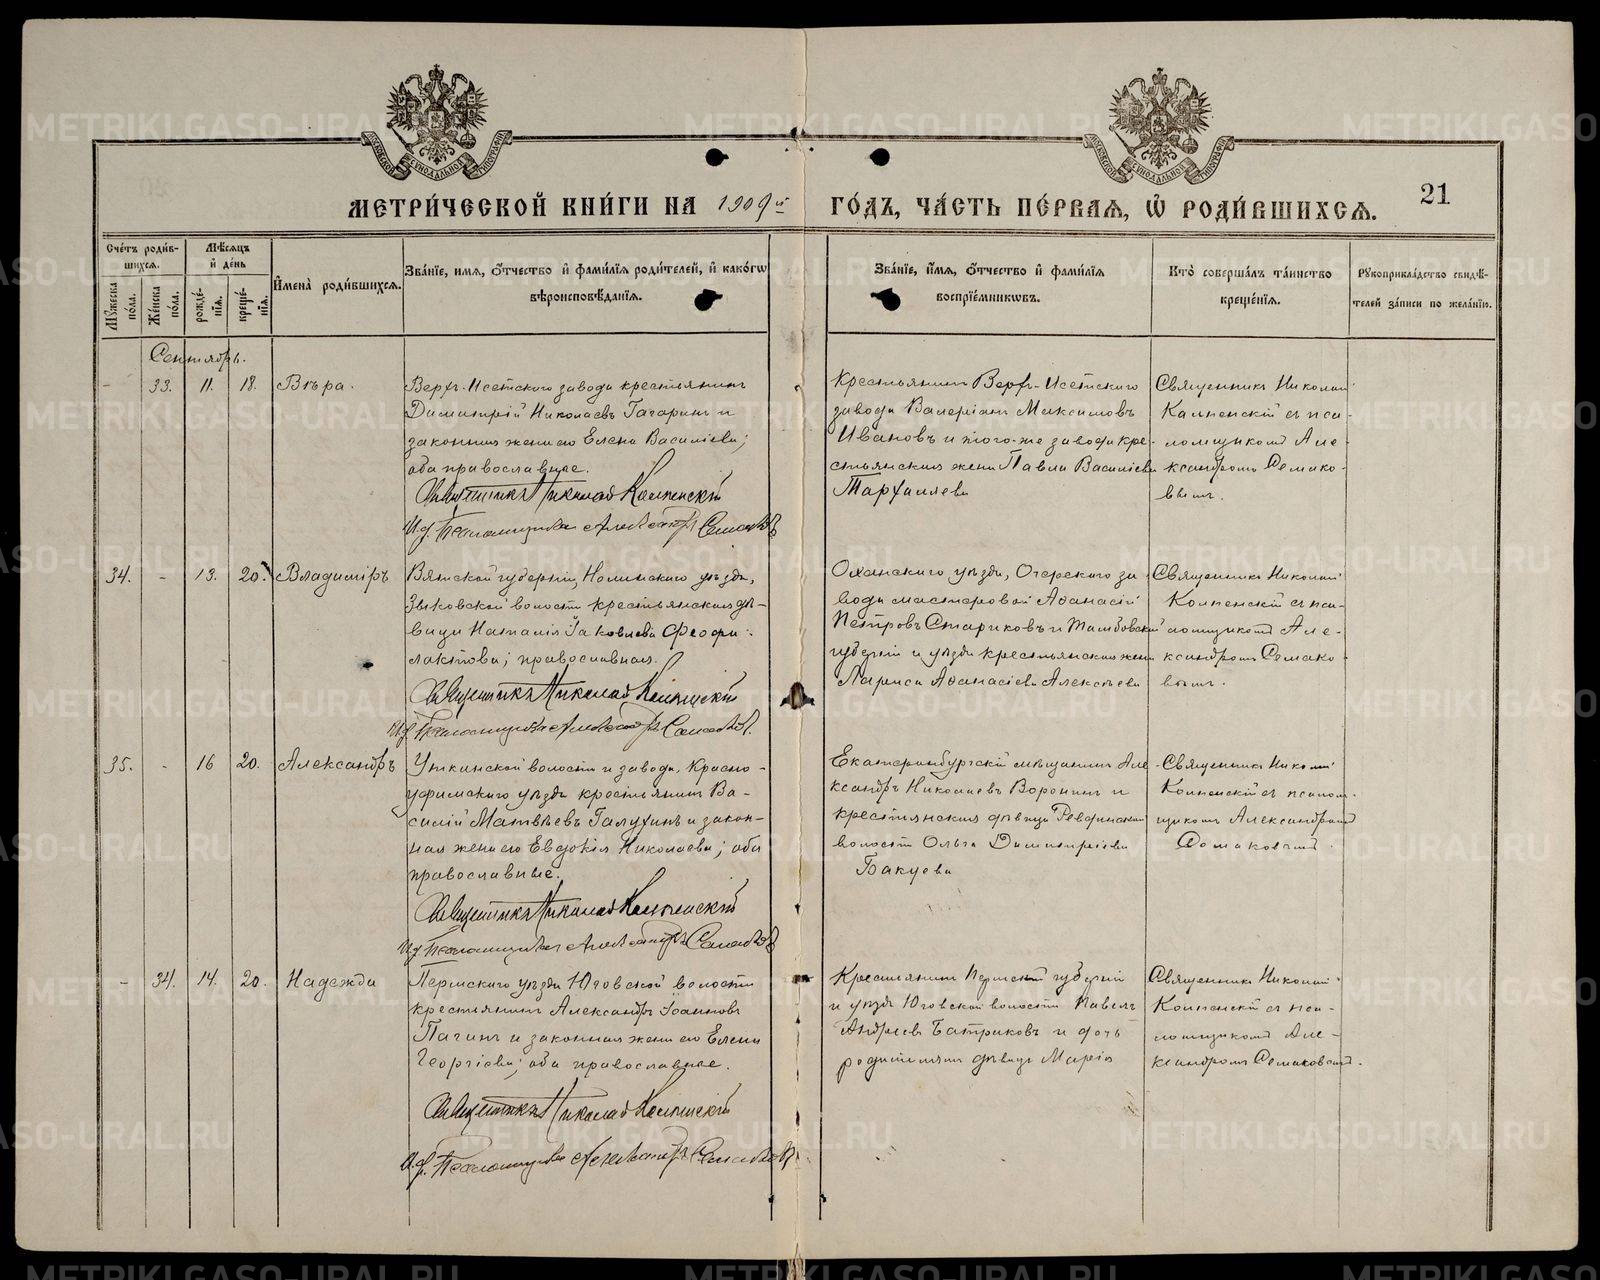 МЕТРИ́ЧЕСКОЙ КНИ́ГИ НА 1909й ГО́ДЪ, ЧА́СТЬ ПЕ́РВАЯ, Ѡ РОДИ́ВШИХСѦ.
21
Сче́тъ роди́в-
шихсѧ.
Мѣ́сѧцъ
и҆ де́нь
Мꙋ́жеска по́ла.
Же́нска по́ла.
рожде́-
нїѧ.
креще́-
нїѧ.
И҆мена̀ роди́вшихсѧ.
Зва́нїе, и҆мѧ, ѻ҆́тчество и҆ фами́лїѧ роди́телей, и҆ како́гѡ
вѣроисповѣ́данїѧ.
Зва́нїе, и҆́мѧ, ѻ҆́тчество и҆ фами́лїѧ
воспрїе́мникѡвъ.
Кто̀ соверша́лъ та́инство
креще́нїѧ.
Рꙋкоприкла́дство свидѣ́-
телей за́писи по жела́нїю.
Сентябрь.
- 33. 11. 18. Вѣра.
Верхъ-Исетскаго завода крестьянинъ
Димитрій Николаевъ Гагаринъ и
законная жена его Елена Василіева;
оба православные.
Священникъ Николай Колпенскій
И.д. Псаломщика Александръ Семаковъ
Крестьянинъ Верхъ-Исетскаго
завода Валеріанъ Максимовъ
Ивановъ и того-же завода кре-
стьянская жена Павла Василіева
Священникъ Николай
Колпенскій съ пса-
ломщикомъ Але-
ксандромъ Семако-
вымъ.
34. - 13. 20. Владиміръ
Вятской губерніи, Нолинскаго уѣзда,
Зыковской волости крестьянская дѣ-
вица Наталія Іаковлева Феофи-
лактова; православная.
Священникъ Николай Колпенскій
И.д. Псаломщика Александръ Семаковъ.
Оханскаго уѣзда, Очерскаго за-
вода мастеровой Аѳанасій
Петровъ Стариковъ и Тамбовской
губерніи и уѣзда крестьянская жена
Лариса Аѳанасіева Алексѣева
Священникъ Николай
Колпенскій съ пса-
ломщикомъ Але-
ксандромъ Семако-
вымъ.
35. - 16 20. Александръ
Уткинской волости и завода, Красно-
уфимскаго уѣзда крестьянинъ Ва-
силій Матвѣевъ Галухинъ и закон-
ная жена его Евдокія Николаева; оба
православные.
Священникъ Николай Колпенскій
И.д. Псаломщика Александръ Семаковъ
Екатеринбургскій мѣщанинъ Але-
ксандръ Николаевъ Воронинъ и
крестьянская дѣвица Ревдинской
волости Ольга Димитріева
Бакуева
Священникъ Николай
Колпенскій съ псалом-
щикомъ Александромъ
Семаковымъ.
- 34. 14. 20. Надежда
Пермскаго уѣзда Юговской волости
крестьянинъ Александръ Іоанновъ
Пагинъ и законная жена его Елена
Георгіева; оба православные.
Священникъ Николай Колпенскій
И.д. Псаломщика Александръ Семаковъ
Крестьянинъ Пермской губерніи
и уѣзда Юговской волости Павелъ
Андреевъ Батриковъ и дочь
родителямъ дѣвица Марія
Священникъ Николай
Колпенскій съ пса-
ломщикомъ Але-
ксандромъ Семаковымъ.
METRIKI.GASO-URAL.RU